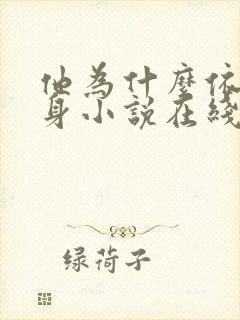 他為什麼依
身小說在綫
绿荷子